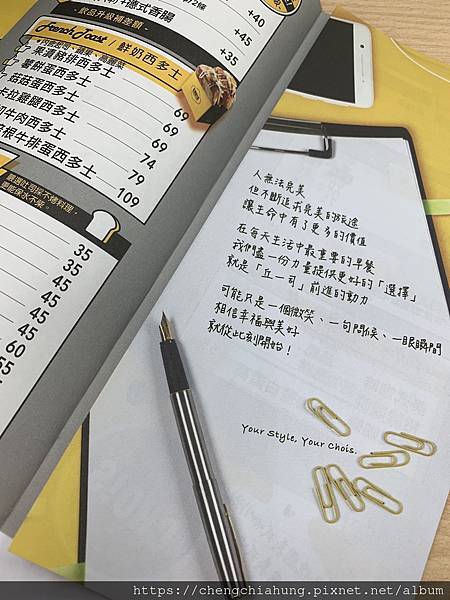 德式香腸
+40
飲品升級補差額
+45
+35
French Toast / 鮮奶西多士
果漬豬排西多士 69
薯餅蛋西多士 69
菇菇蛋西多士 69
卡拉雞腿西多士 74
牛肉西多士 79
牛排蛋西多士 109
35
35
45
45
45
45
60
55
45
人無法完美
但不斷追求完美的旅途
讓生命中有了更多的價值
在每天生活中最重要的早餐
我們盡一份力量提供更好的「選擇」
就是「丘一司」前進的動力
可能只是一個微笑、一句問候、一眼瞬間
相信幸福與美好
就從此刻開始！
Your Style, Your Chois.
https://chengchiahung.pixnet.net/album